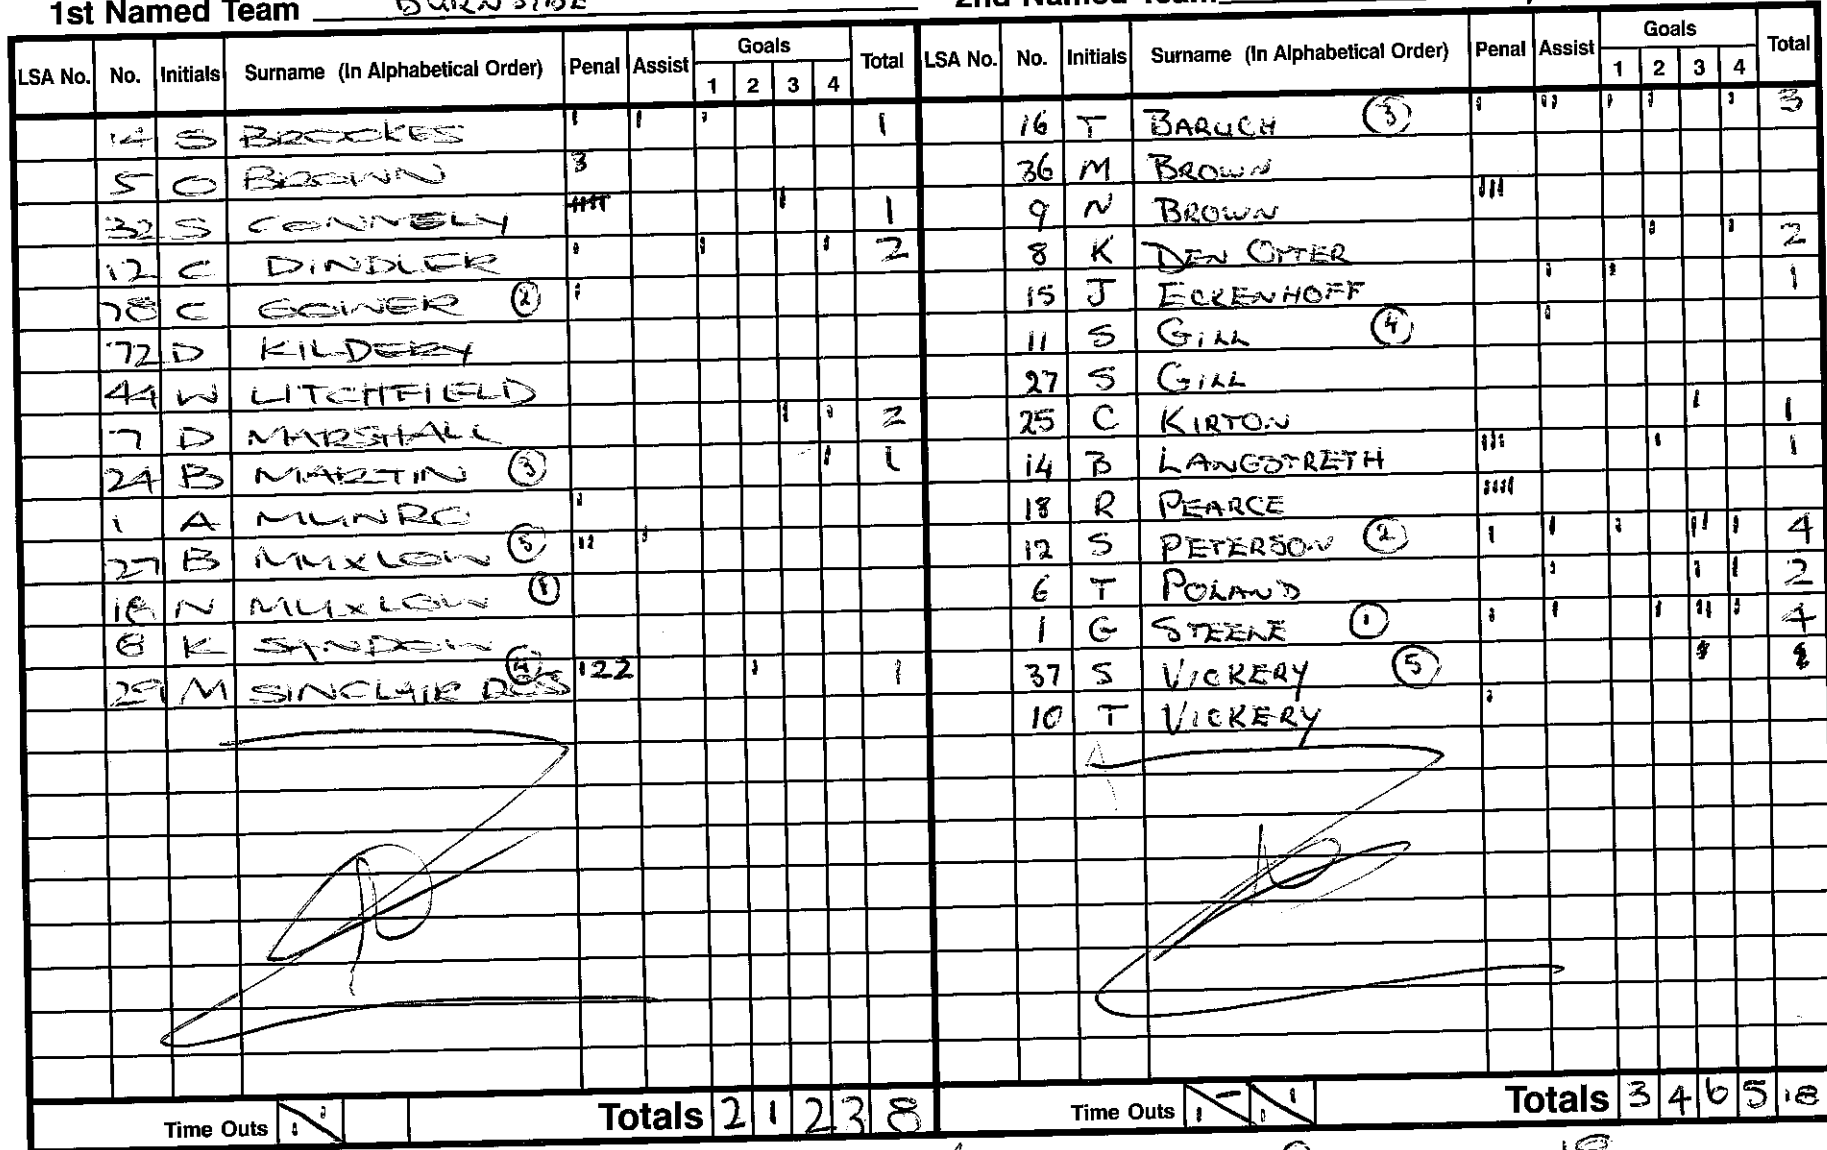 1st Named Team BURNSIDE 2nd Named Team
LSA No. No. Initials Surname (In Alphabetical Order) Penal Assist Goals 1 2 3 4 Total
14 S BROOKES ' ' ' 1
5 O BROWN 3
32 S CONNELY ' 1
12 C DINDLER ' ' ' 2
78 C GOINER (2) '
72 D KILDERY
44 W LITCHFIELD
7 D MARSHALL ' ' 2
24 B MARTIN (3) ' 1
1 A MUNRO '
27 B MUXLOW (5) '' '
18 N MUXLOW (1)
8 K SANDOW
29 M SINCLAIR ROS (4) 122 ' 1
Time Outs
Totals 2 1 2 3 8
LSA No. No. Initials Surname (In Alphabetical Order) Penal Assist Goals 1 2 3 4 Total
16 T BARUCH (3) ' '' ' ' ' 3
36 M BROWN
9 N BROWN '''
8 K DEN OTTER ' ' 2
15 J ECKENHOFF ' ' 1
11 S GILL (4) '
27 S GILL
25 C KIRTON ' 1
14 B LANGSTRETH ''' ' 1
18 R PEARCE ''''
12 S PETERSON (2) ' ' ' '' ' 4
6 T POLAND ' ' ' 2
1 G STEELE (1) ' ' ' '' ' 4
37 S VICKERY (5)
10 T VICKERY '
Time Outs
Totals 3 4 6 5 18